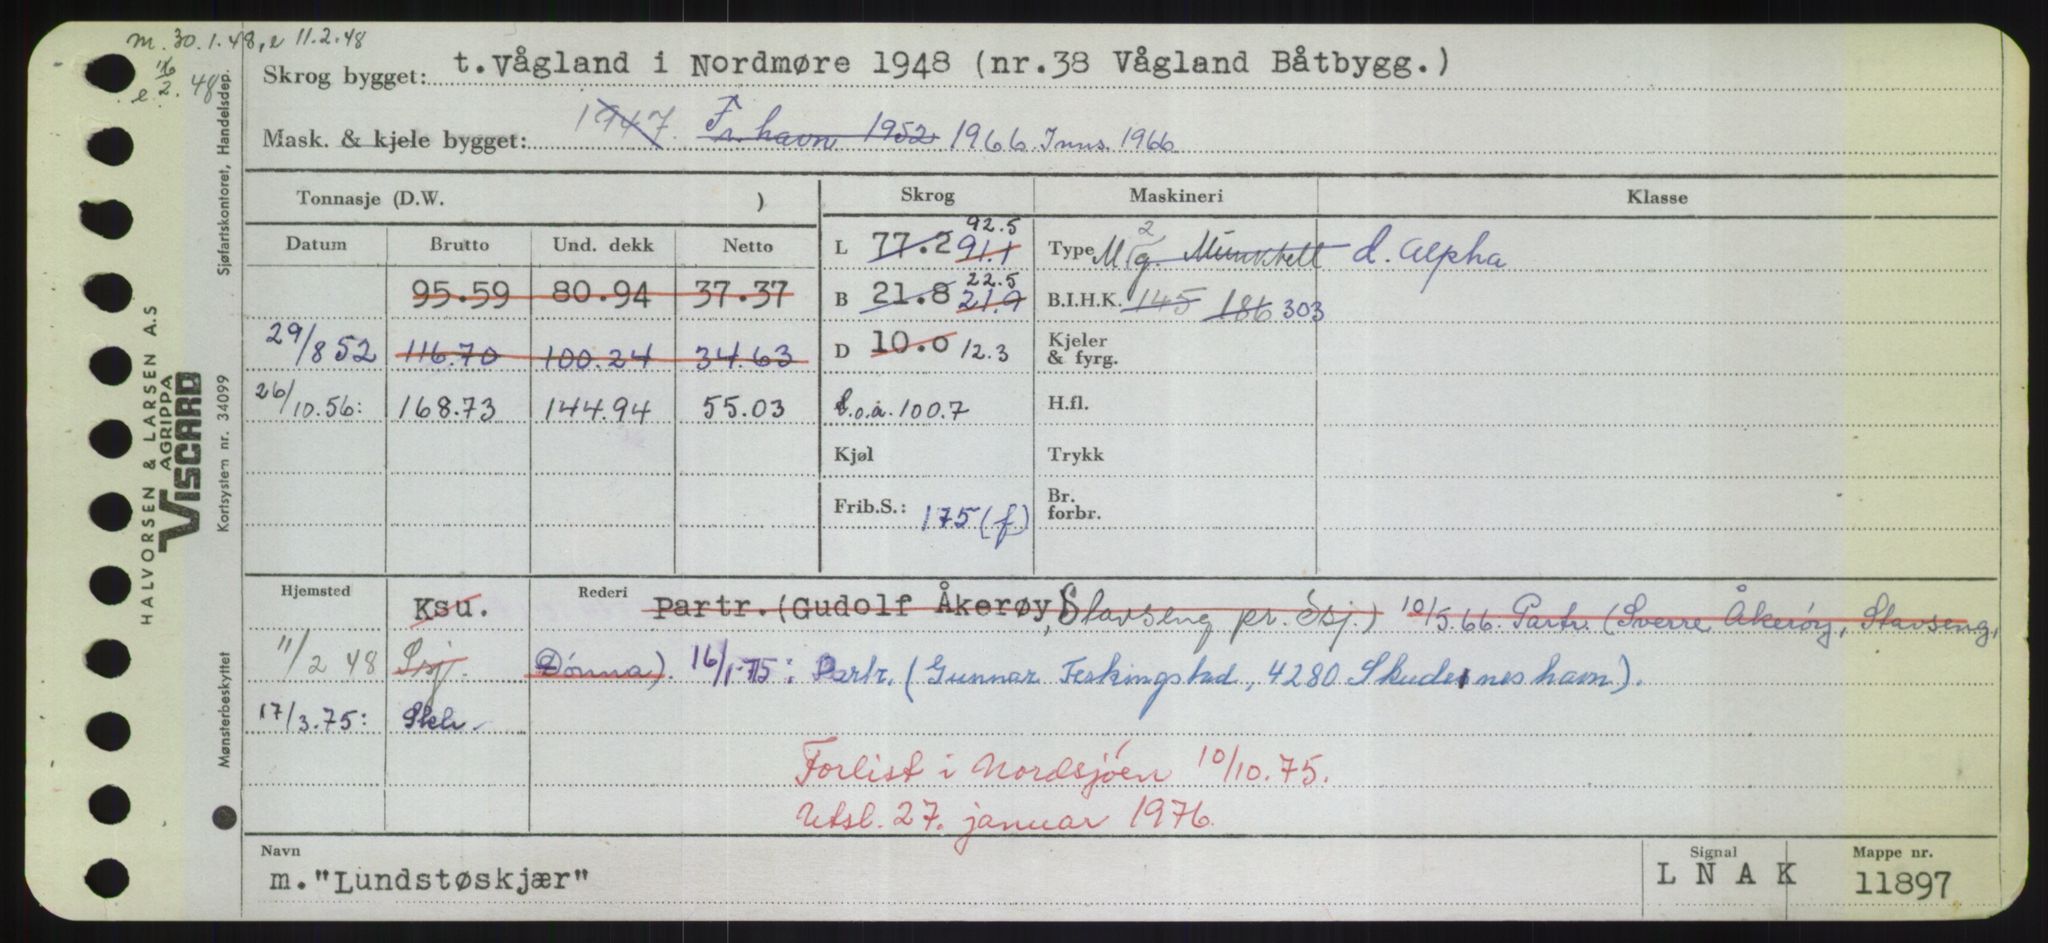 m. 30.1.48, e 11.2.48
e. 16/2. 48
Skrog bygget: t. Vågland i Nordmøre 1948 (nr.38 Vågland Båtbygg.)
Mask. & kjele bygget: 1947. Fr.havn 1952 1966 Inns. 1966
Tonnasje (D.W. ) Skrog Maskineri Klasse
Datum Brutto Und. dekk Netto L 77.2 91.1 92.5 Type M/g. 2 Munktell d. Alpha
95.59 80.94 37.37 B 21.8 21.9 22.5 B.I.H.K. 145 186 303
29/8 52 116.70 100.24 34.63 D 10.0 12.3 Kjeler & fyrg.
26/10.56: 168.73 144.94 55.03 l.o.a. 100.7 H.fl.
Kjøl Trykk
Frib.S.: 175 (f) Br. forbr.
Hjemsted Ksu. Rederi Partr. (Gudolf Åkerøy, Stavseng pr. Ssj.) 10/5.66. Partr. (Sverre Åkerøy, Stavseng,
11/2 48 Ssj. Dønna). 16/1-75: Partr. (Gunnar Ferkingstad, 4280 Skudeneshavn).
17/3.75: Skh.
Forlist i Nordsjøen 10/10.75.
Utsl. 27. januar 1976.
Navn Signal Mappe nr.
m. "Lundstøskjær" L N A K 11897
HALVORSEN & LARSEN A.S
AGRIPPA
VISCARD
Kortsystem nr. 34099
Mønsterbeskyttet
Sjøfartskontoret, Handelsdep.